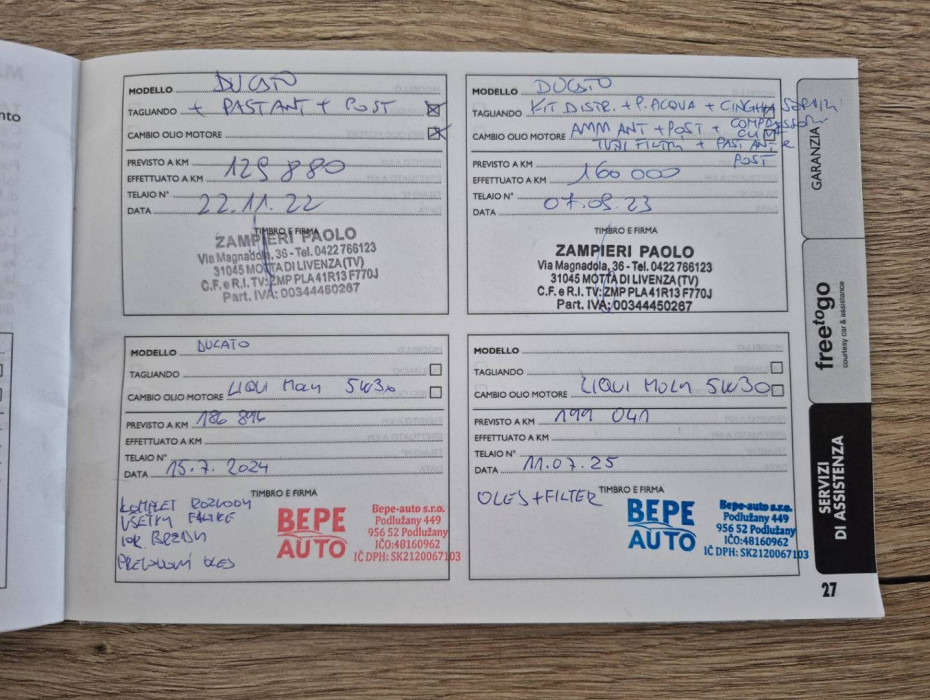 MODELLO DUCATO
TAGLIANDO + PAST ANT + POST
CAMBIO OLIO MOTORE
PREVISTO A KM 129 880
EFFETTUATO A KM
TELAIO N°
DATA 22.11.22
TIMBRO E FIRMA
ZAMPIERI PAOLO
Via Magnadola, 36 - Tel. 0422 766123
31045 MOTTA DI LIVENZA (TV)
C.F. e R.I. TV: ZMP PLA 41R13 F770J
Part. IVA: 00344450267
MODELLO DUCATO
TAGLIANDO KIT DISTR. + P. ACQUA + CINGHIA SERVIZI
CAMBIO OLIO MOTORE AMM ANT + POST + COMPRESSORE
TUTTI FILTRI + PAST ANT e
POST
PREVISTO A KM
EFFETTUATO A KM 160 000
TELAIO N°
DATA 07.09.23
TIMBRO E FIRMA
ZAMPIERI PAOLO
Via Magnadola, 36 - Tel. 0422 766123
31045 MOTTA DI LIVENZA (TV)
C.F. e R.I. TV: ZMP PLA 41R13 F770J
Part. IVA: 00344450267
MODELLO DUCATO
TAGLIANDO
CAMBIO OLIO MOTORE LIQUI MOLY 5W30
PREVISTO A KM 186 894
EFFETTUATO A KM
TELAIO N°
DATA 15.7. 2024
TIMBRO E FIRMA
KOMPLET ROZVODY
VŠETKY FILTRE
BRZDY
PREVODOVÝ OLEJ
BEPE
AUTO
Bepe-auto s.r.o.
Podlužany 449
956 52 Podlužany
IČO:48160962
IČ DPH: SK2120067103
MODELLO
TAGLIANDO
CAMBIO OLIO MOTORE LIQUI MOLY 5W30
PREVISTO A KM 199 041
EFFETTUATO A KM
TELAIO N°
DATA 11.07.25
TIMBRO E FIRMA
OLEJ + FILTER
BEPE
AUTO
Bepe-auto s.r.o.
Podlužany 449
956 52 Podlužany
IČO:48160962
IČ DPH: SK2120067103
GARANZIA
freetogo
courtesy car & assistance
SERVIZI
DI ASSISTENZA
27